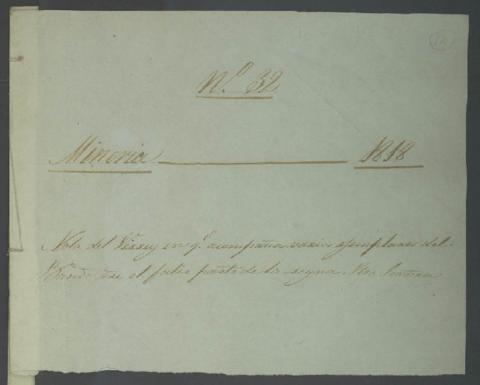 N.º 32
Mineria 1818
Nota del Virrey en q.e acompaña varios ejemplares del
Bando de el de la reyna